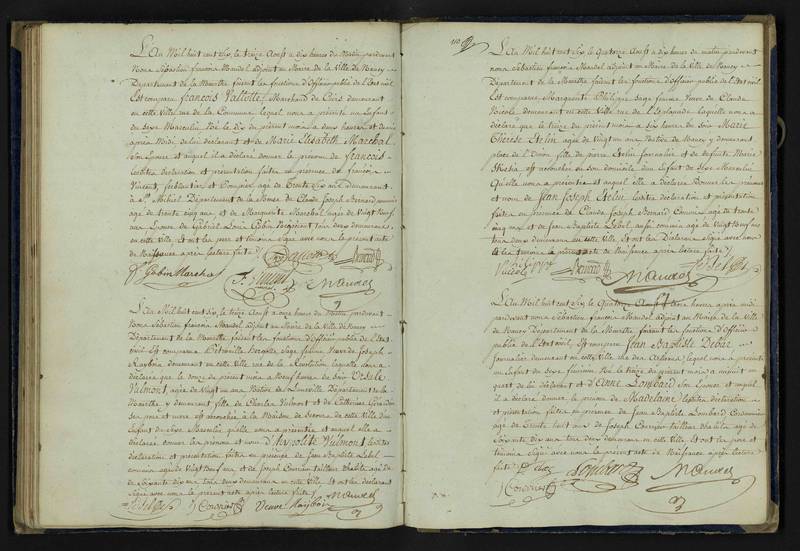 L'An Mil huit cent Six, le treize Aoust a dix heures du Matin pardevant
Nous Sébastien francois Mandel adjoint au Maire de la Ville de Nancy
Département de la Meurthe faisant les fonctions d'Officier public de l'Etat civil
Est comparu francois Vallotte, Marchand de demeurant
en cette Ville rue de la Commune lequel nous a présenté un Enfant
du Sexe Masculin Né le dix du présent mois a deux heures et demi
après Midi, de lui déclarant et de Marie Elisabeth Marechal
Son Epouse et auquel il a déclaré donner le prenom de francois
lesdites déclaration et présentation faites en présence de francois
Vincent, ferblantier et Pompier, agé de trente Six ans demeurant
a St. Mihiel Département de la Meuse de Claude Joseph Bernard commis
agé de trente cinq ans, et de Marguerite Marechal agée de Vingt Neuf
ans Epouse de Gabriel Louis Gobin Negotiant tous deux demeurans
en cette Ville, Et ont les pere et témoins Signé avec nous le présent acte
de Naissance après lecture faite
fe Gobin Marechal
Bernard
Mandel
L'An Mil huit cent Six, le treize Aoust a onze heures du Matin pardevant
Nous Sébastien francois Mandel adjoint au Maire de la Ville de Nancy
Département de la Meurthe faisant les fonctions d'Officier public de l'Etat
civil Est comparue Pétronille Sage femme Veuve de Joseph
demeurant en cette Ville rue de la Révolution laquelle nous a
déclaré que le douze du présent mois a Neuf heures du Soir
Vulmont, agée de Vingt un ans Native de Lunéville Département de la
Meurthe y demeurant fille de Charles Vulmont et de Catherine
ses pere et mere est accouchée a la Maison de Secours de cette Ville d'un
Enfant du Sexe Masculin qu'elle nous a présenté et auquel elle a
déclaré donner les prenom et nom d'Hypolite Vulmont lesdites
déclaration et présentation faites en présence de Jean Baptiste Lebel
commis agé de Vingt Neuf ans, et de Joseph Courrier tailleur d'habits agé de
de Soixante dix ans tous deux demeurans en cette Ville Et ont les déclarans
Signé avec nous le présent acte après lecture faite
Lebel
J Courrier
Veuve
Mandel
L'An Mil huit cent Six, le Quatorze Aoust a dix heures du matin pardevant
nous Sébastien francois Mandel adjoint au Maire de la Ville de Nancy
Département de la Meurthe faisant les fonctions d'Officier public de l'Etat civil
Est comparue Marguerite Philippe Sage femme Veuve de Claude
Nicole demeurant en cette Ville rue de l'Esplanade laquelle nous a
déclaré que le treize du présent mois a Six heures du Soir Marie
Thérèse Stelin agée de Vingt six ans Native de Nancy y demeurant
place de l'Union fille de Stelin Journalier et de deffunte Marie
est accouchée en son domicile d'un Enfant du Sexe Masculin
Qu'elle nous a présenté et auquel elle a déclaré Donner les prenoms
et nom de Jean Joseph Stelin lesdites déclaration et présentation
faites en présence de Claude Joseph Bernard Commis agé de trente
cinq ans, et de Jean Baptiste Lebel aussi commis agé de Vingt Neuf ans
tous deux demeurans en cette Ville, Et ont la Déclarante Signé avec nous
et les témoins le présent acte de Naissance après lecture faite
Ve Philippe
Nicole
Bernard
Lebel
Mandel
L'An Mil huit cent Six, le Quatorze Aoust a heures après midi
pardevant nous Sébastien francois Mandel adjoint au Maire de la Ville
de Nancy Département de la Meurthe faisant les fonctions d'Officier
public de l'Etat civil, Est comparu Jean Baptiste Debar
Journalier demeurant en cette Ville rue des Artisans lequel nous a présenté
un Enfant du Sexe féminin Né le du présent mois a minuit un
quart de lui déclarant et d'Anne Lombard Son Epouse et auquel
il a déclaré donner le prenom de Madelaine lesdites déclaration
et présentation faites en présence de Jean Baptiste Lombard Cordonnier
agé de trente huit ans, de Joseph Courrier tailleur d'habits agé de
Soixante dix ans tous deux demeurans en cette Ville Et ont les pere et
témoins Signé avec nous le présent acte de Naissance après lecture
faite
Lombard
Mandel
J Courrier